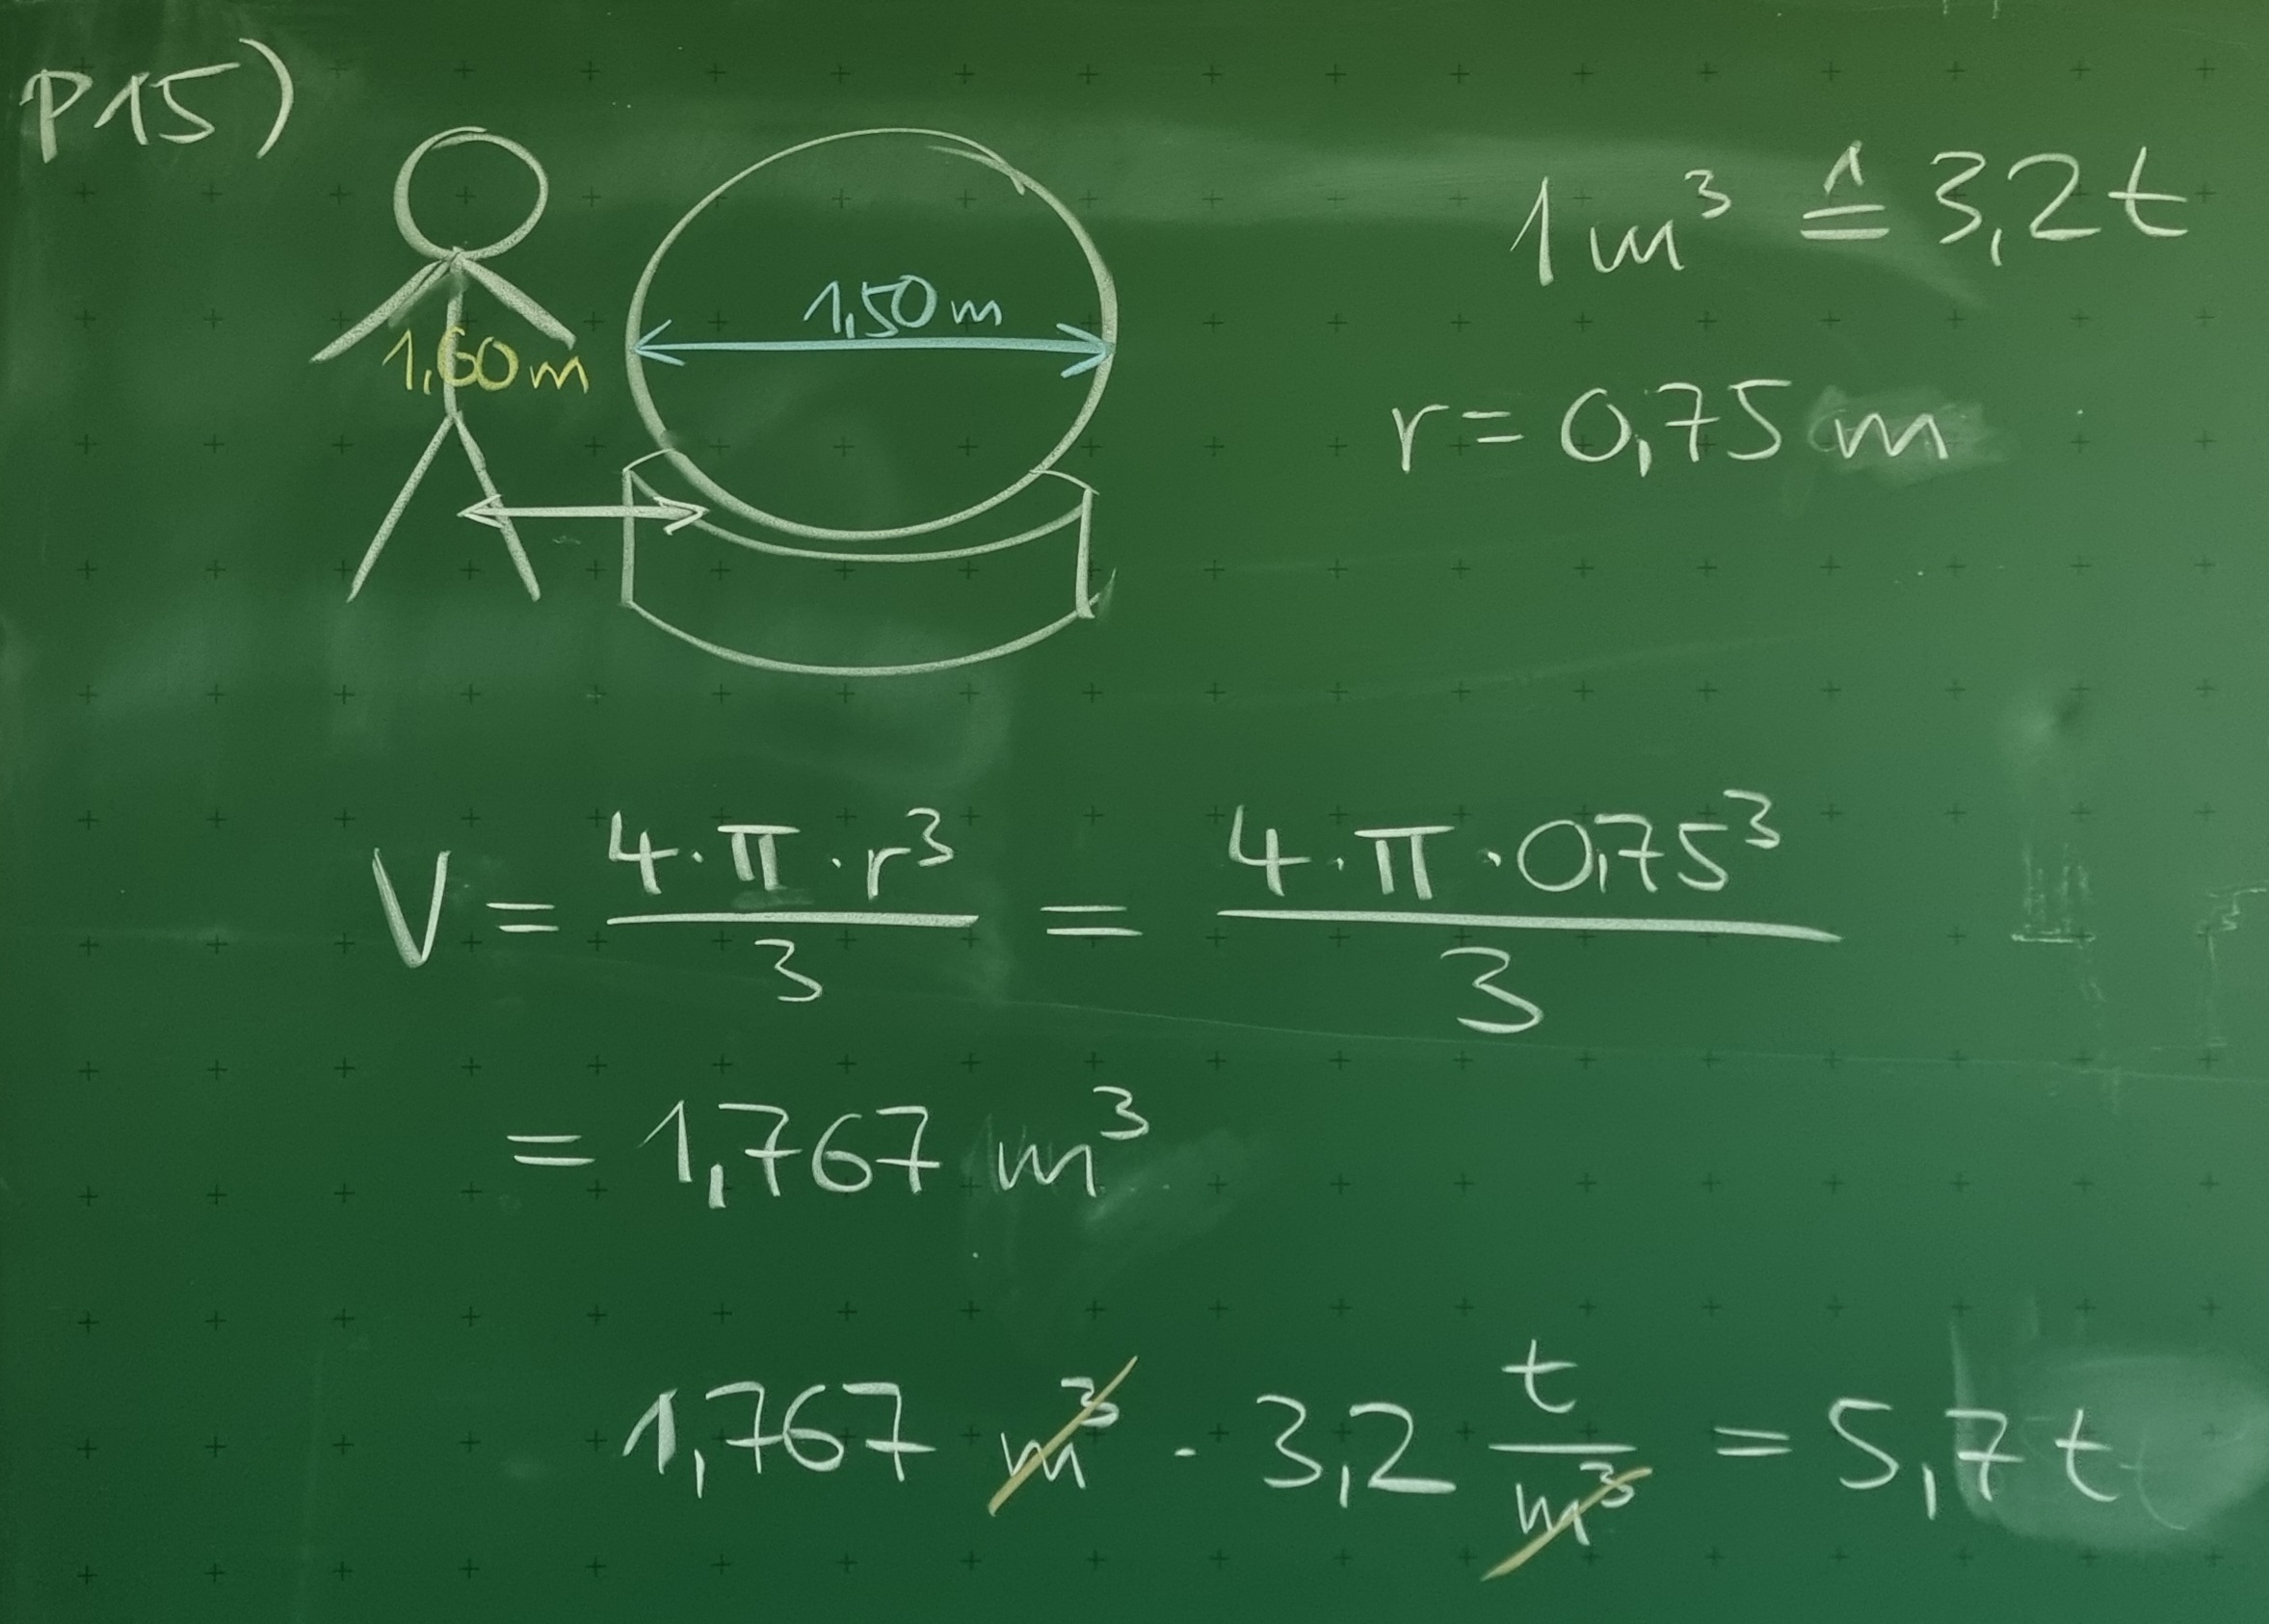 P15)
1 m³ ≙ 3,2 t
1,50 m
1,60 m
r = 0,75 m
V = 4·π·r³/3 = 4·π·0,75³/3
= 1,767 m³
1,767 m³ · 3,2 t/m³ = 5,7 t